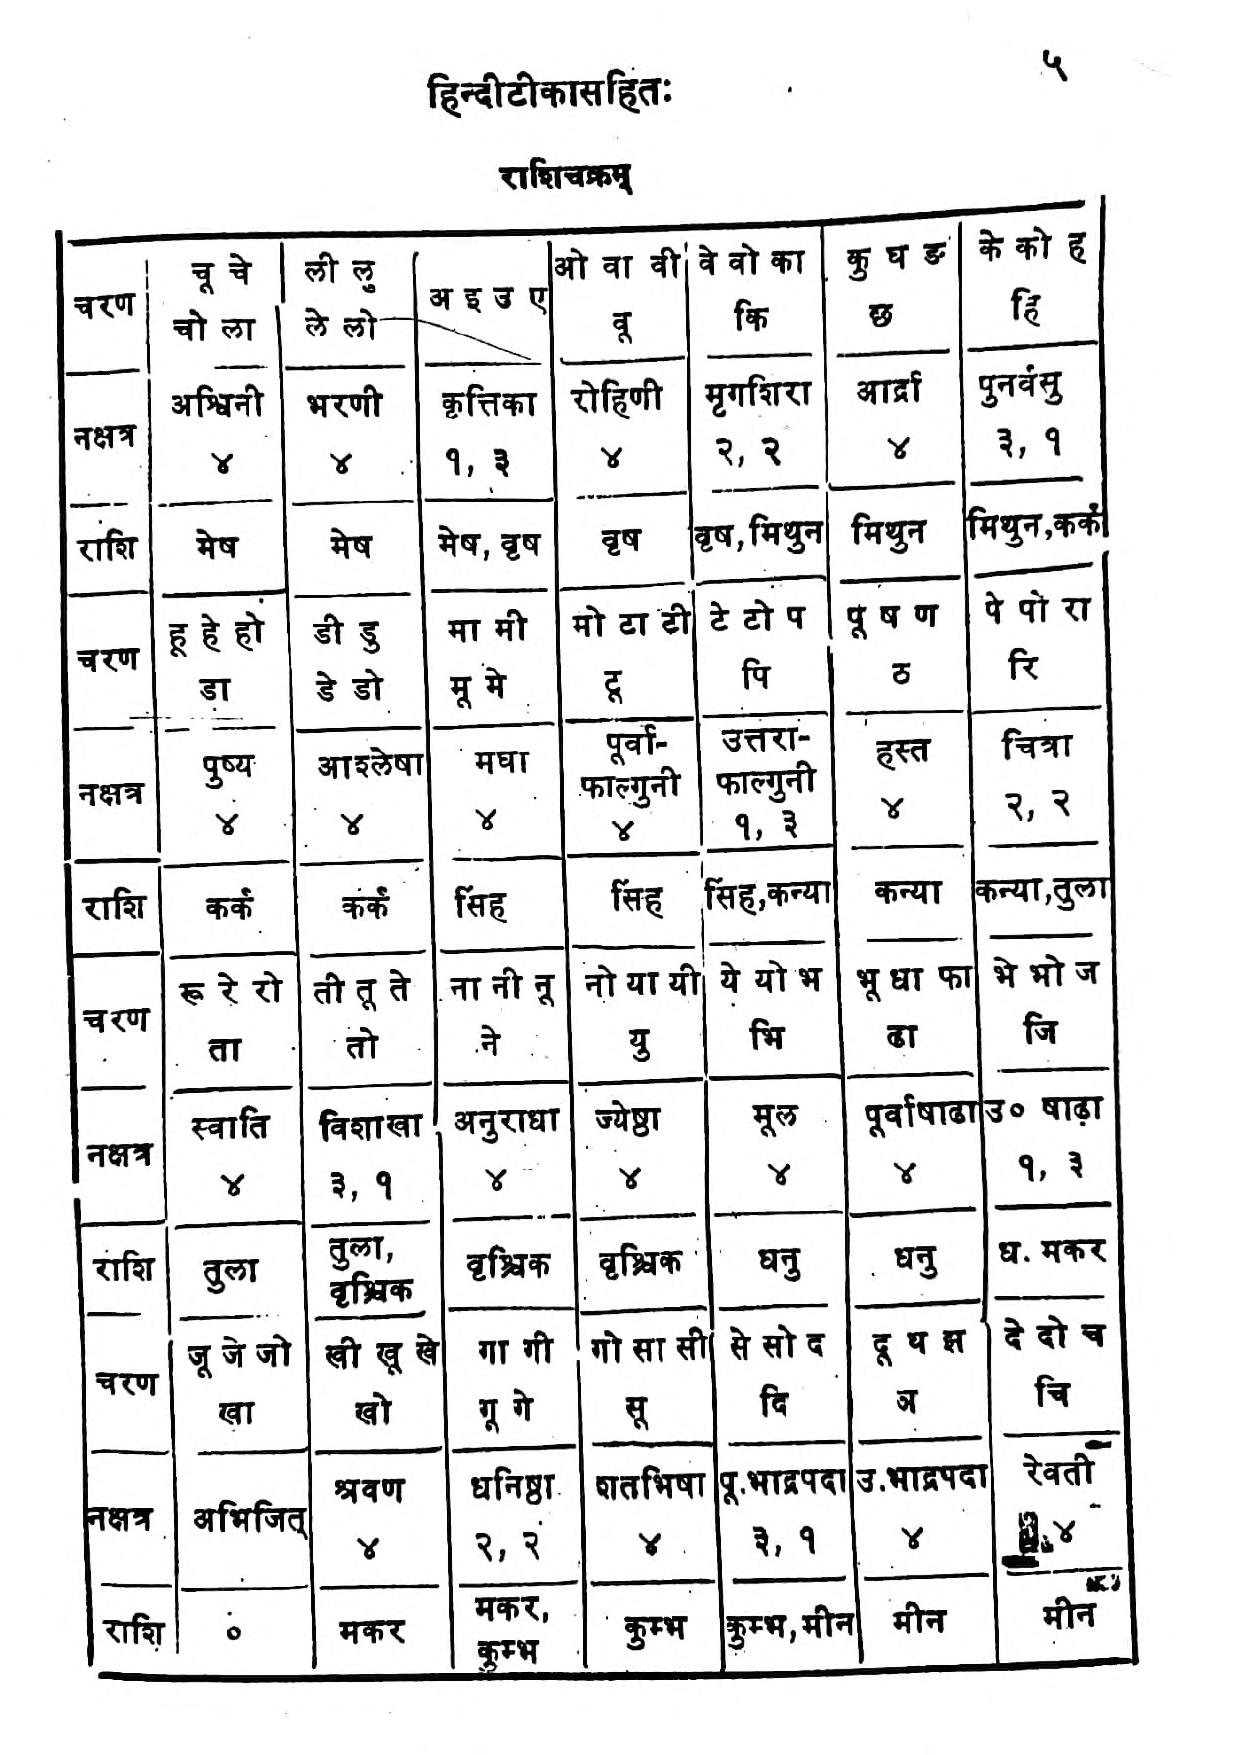 ५
हिन्दीटीकासहितः
राशिचक्रम्
चरण | चू चे चो ला | ली लु ले लो | अ इ उ ए | ओ वा वी वू | वे वो का कि | कु घ ङ छ | के को ह हि
नक्षत्र | अश्विनी ४ | भरणी ४ | कृत्तिका १, ३ | रोहिणी ४ | मृगशिरा २, २ | आर्द्रा ४ | पुनर्वसु ३, १
राशि | मेष | मेष | मेष, वृष | वृष | वृष, मिथुन | मिथुन | मिथुन, कर्क
चरण | हू हे हो डा | डी डु डे डो | मा मी मू मे | मो टा टी टू | टे टो प पि | पू ष ण ठ | पे पो रा रि
नक्षत्र | पुष्य ४ | आश्लेषा ४ | मघा ४ | पूर्वा-फाल्गुनी ४ | उत्तरा-फाल्गुनी १, ३ | हस्त ४ | चित्रा २, २
राशि | कर्क | कर्क | सिंह | सिंह | सिंह, कन्या | कन्या | कन्या, तुला
चरण | रू रे रो ता | ती तू ते तो | ना नी नू ने | नो या यी यु | ये यो भ भि | भू धा फा ढा | भे भो ज जि
नक्षत्र | स्वाति ४ | विशाखा ३, १ | अनुराधा ४ | ज्येष्ठा ४ | मूल ४ | पूर्वाषाढा ४ | उ० षाढ़ा १, ३
राशि | तुला | तुला, वृश्चिक | वृश्चिक | वृश्चिक | धनु | धनु | ध. मकर
चरण | जू जे जो खा | खी खू खे खो | गा गी गू गे | गो सा सी सू | से सो द दि | दू थ झ ञ | दे दो च चि
नक्षत्र | अभिजित् | श्रवण ४ | धनिष्ठा २, २ | शतभिषा ४ | पू.भाद्रपदा ३, १ | उ.भाद्रपदा ४ | रेवती ४
राशि | ० | मकर | मकर, कुम्भ | कुम्भ | कुम्भ, मीन | मीन | मीन